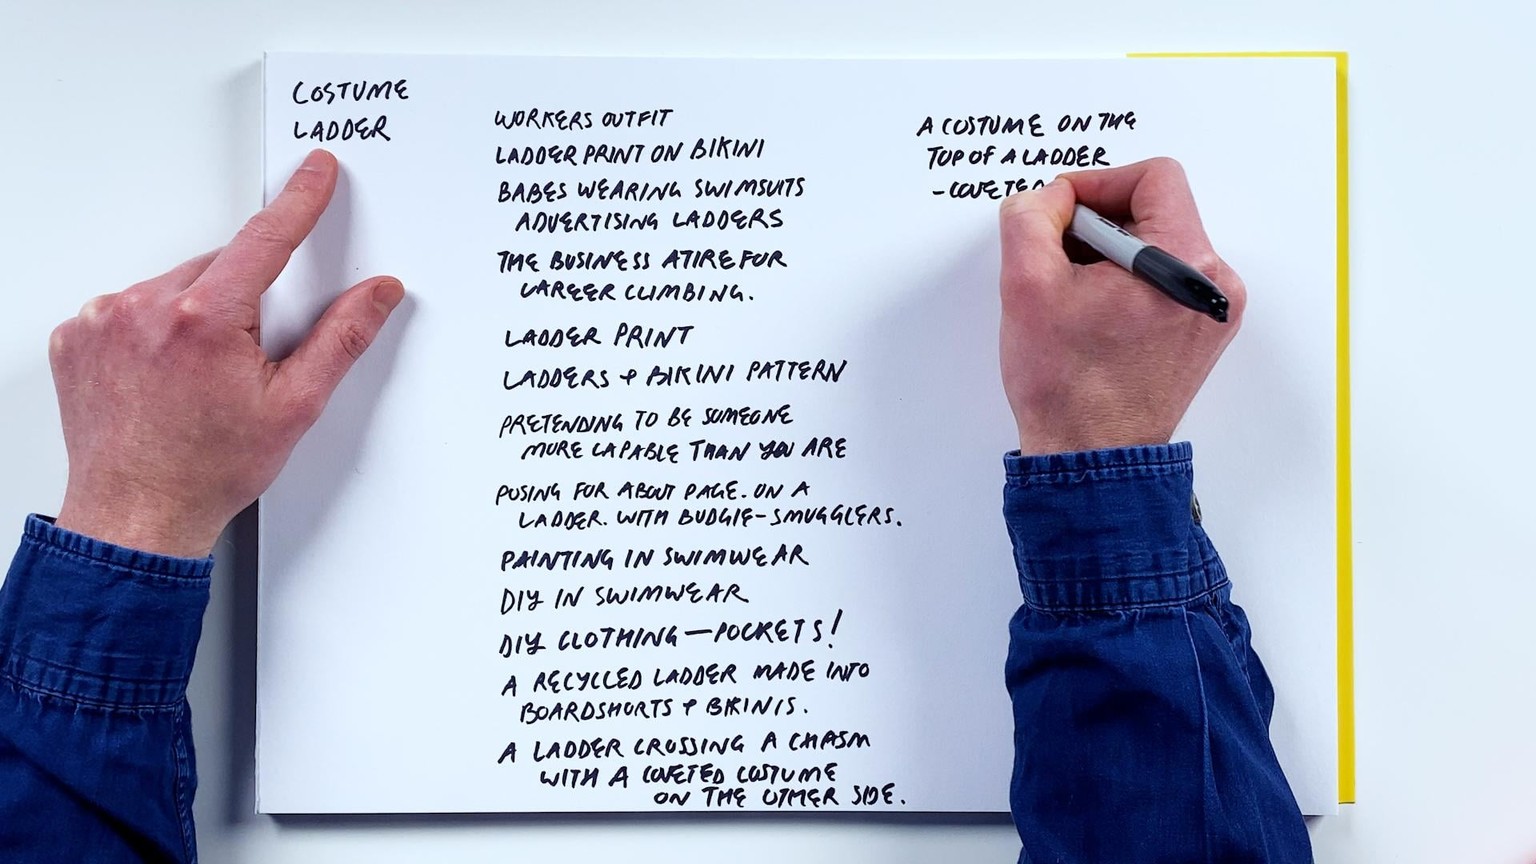 COSTUME
LADDER
WORKERS OUTFIT
LADDER PRINT ON BIKINI
BABES WEARING SWIMSUITS
ADVERTISING LADDERS
THE BUSINESS ATIRE FOR
CAREER CLIMBING.
LADDER PRINT
LADDERS + BIKINI PATTERN
PRETENDING TO BE SOMEONE
MORE CAPABLE THAN YOU ARE
POSING FOR ABOUT PAGE. ON A
LADDER. WITH BUDGIE-SMUGGLERS.
PAINTING IN SWIMWEAR
DIY IN SWIMWEAR
DIY CLOTHING—POCKETS!
A RECYCLED LADDER MADE INTO
BOARDSHORTS + BIKINIS.
A LADDER CROSSING A CHASM
WITH A COVETED COSTUME
ON THE OTHER SIDE.
A COSTUME ON THE
TOP OF A LADDER
- COVETED